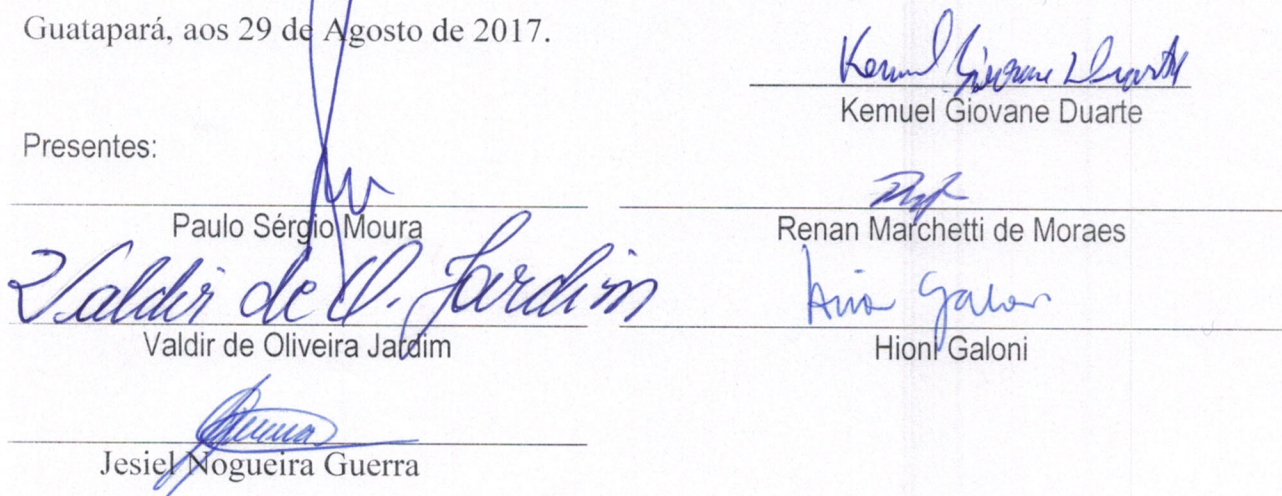 Guatapará, aos 29 de Agosto de 2017.
Kemuel Giovane Duarte
Kemuel Giovane Duarte
Presentes:
Paulo Sérgio Moura
Renan Marchetti de Moraes
Valdir de O. Jardim
Valdir de Oliveira Jardim
Hioni Galoni
Jesiel Nogueira Guerra